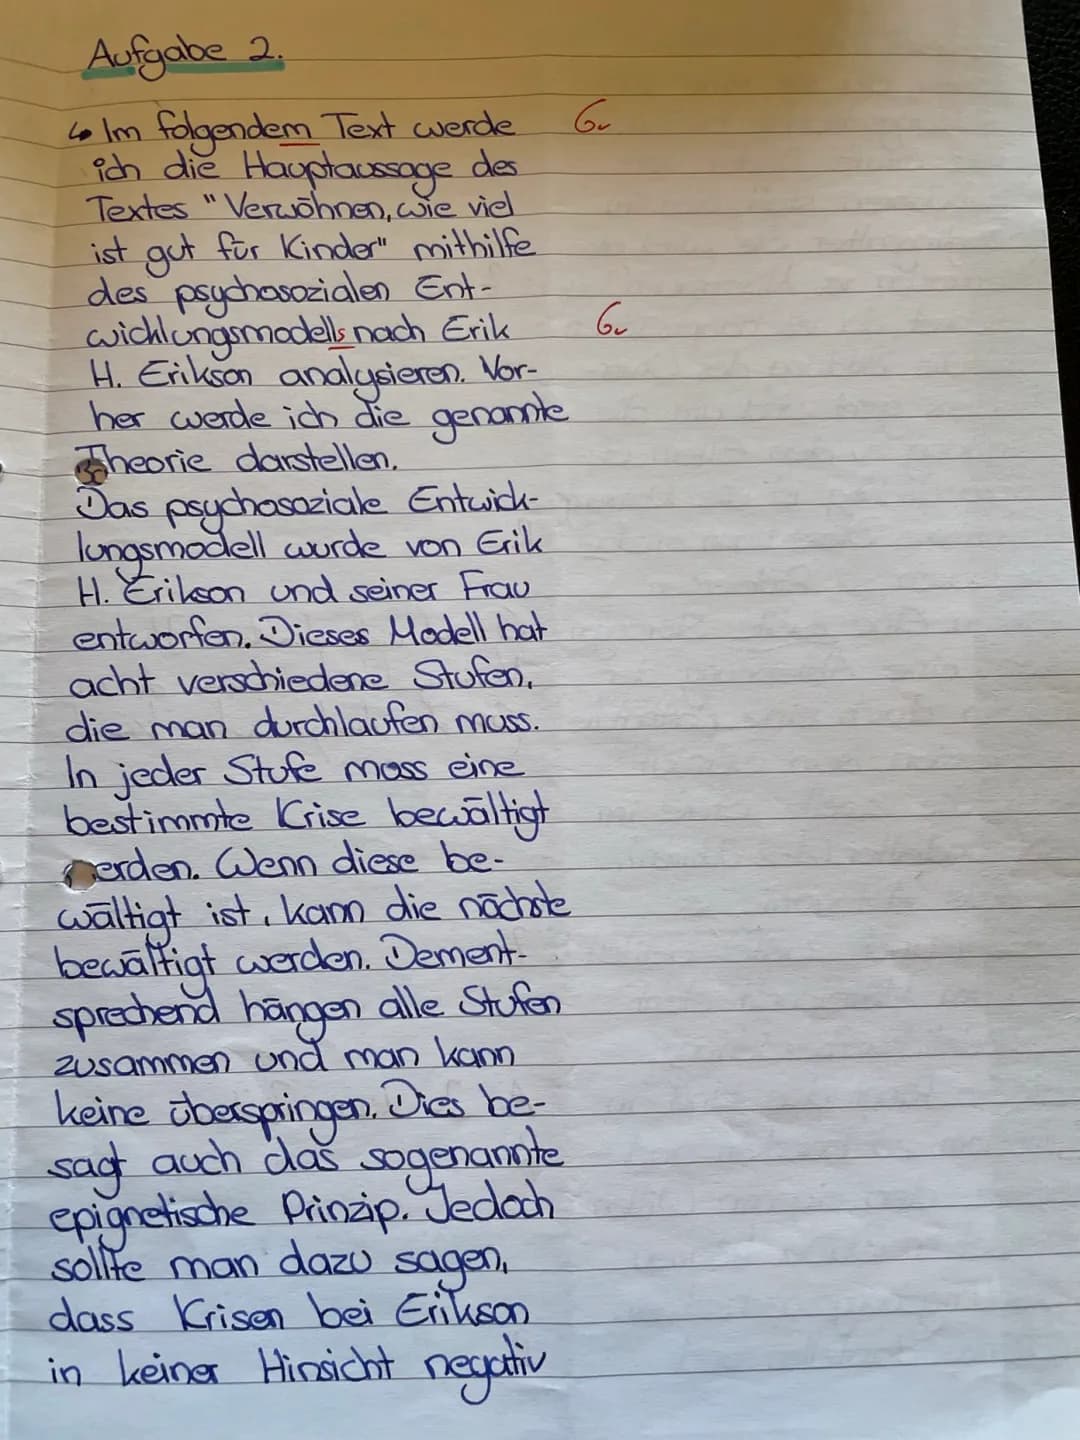 Aufgabe 2.
↳ Im folgendem Text werde G~
ich die Hauptaussage des
Textes "Verwöhnen, wie viel
ist gut für Kinder" mithilfe
des psychosozialen Ent-
wicklungsmodells nach Erik G~
H. Erikson analysieren. Vor-
her werde ich die genannte
Theorie darstellen.
Das psychosoziale Entwick-
lungsmodell wurde von Erik
H. Erikson und seiner Frau
entworfen. Dieses Modell hat
acht verschiedene Stufen,
die man durchlaufen muss.
In jeder Stufe muss eine
bestimmte Krise bewältigt
erden. Wenn diese be-
wältigt ist, kann die nächste
bewältigt werden. Dement-
sprechend hängen alle Stufen
zusammen und man kann
keine überspringen. Dies be-
sagt auch das sogenannte
epignetische Prinzip. Jedoch
sollte man dazu sagen,
dass Krisen bei Erikson
in keiner Hinsicht negativ